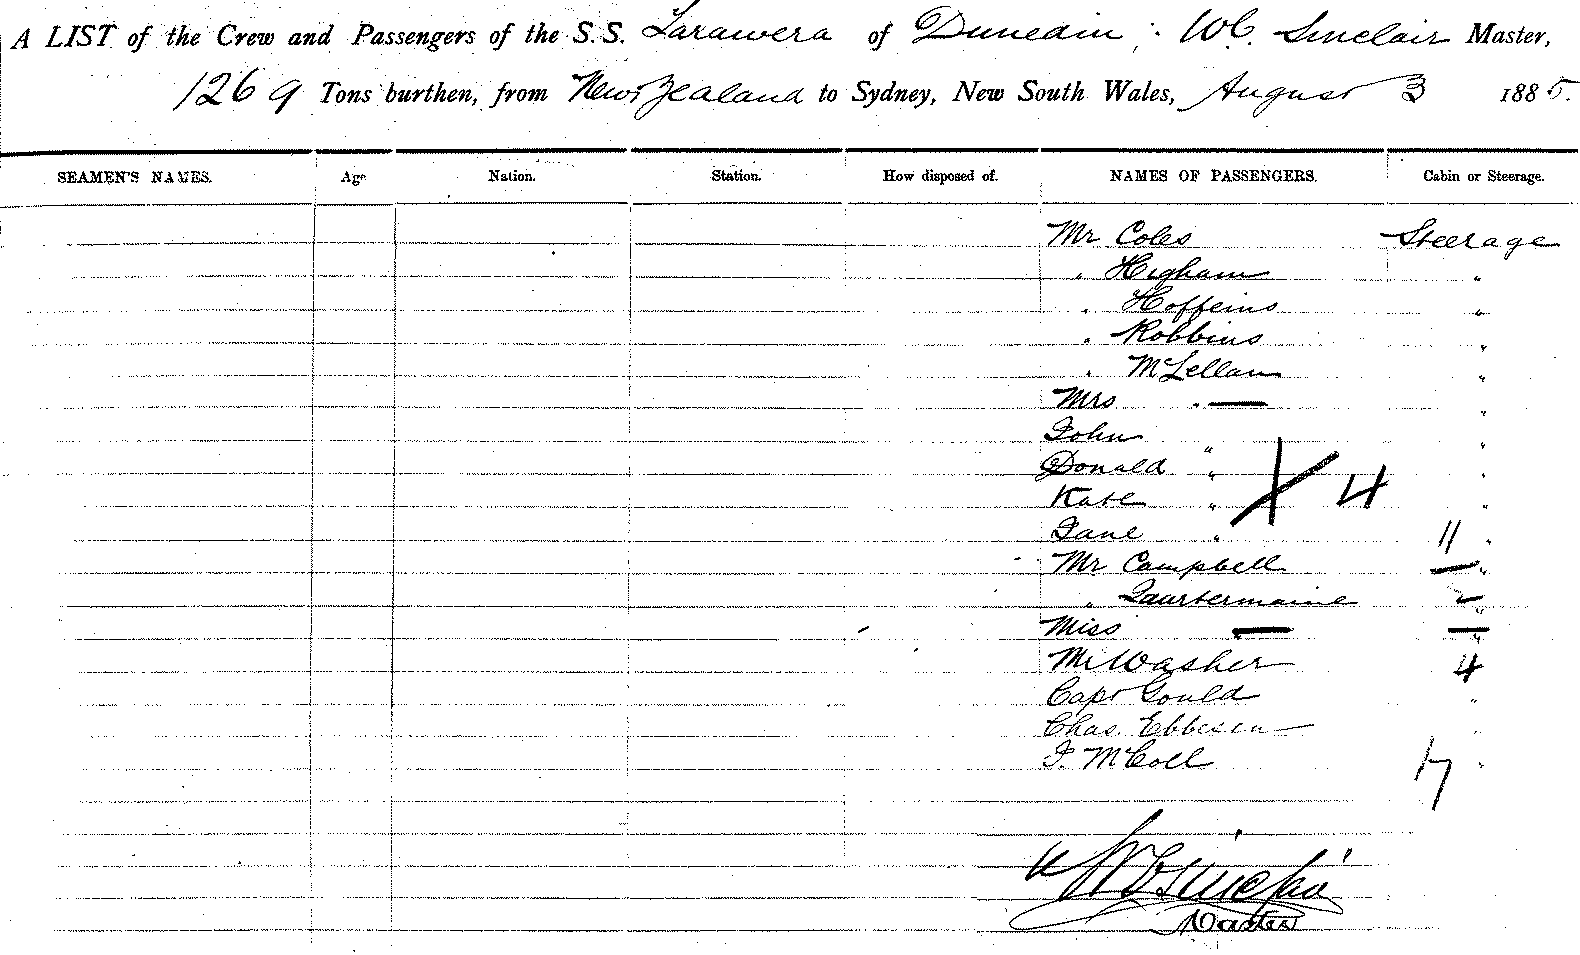 A LIST of the Crew and Passengers of the S.S. Tarawera of Dunedin, W.C. Sinclair Master,
1269 Tons burthen, from New Zealand to Sydney, New South Wales, August 3 1885.
SEAMEN'S NAMES. Age Nation. Station. How disposed of. NAMES OF PASSENGERS. Cabin or Steerage.
Mr Coles Steerage
" Higham "
" Hoffeins "
" Robbins "
" McLellan "
Mrs " — "
John " "
Donald " "
Kate " 4 "
Jane " 11 "
Mr Campbell "
" Quartermaine "
Miss — "
Mr Washer 4
Capt Gould "
Chas. Ebbesen "
J. McColl 17 "
W C Sinclair
Master